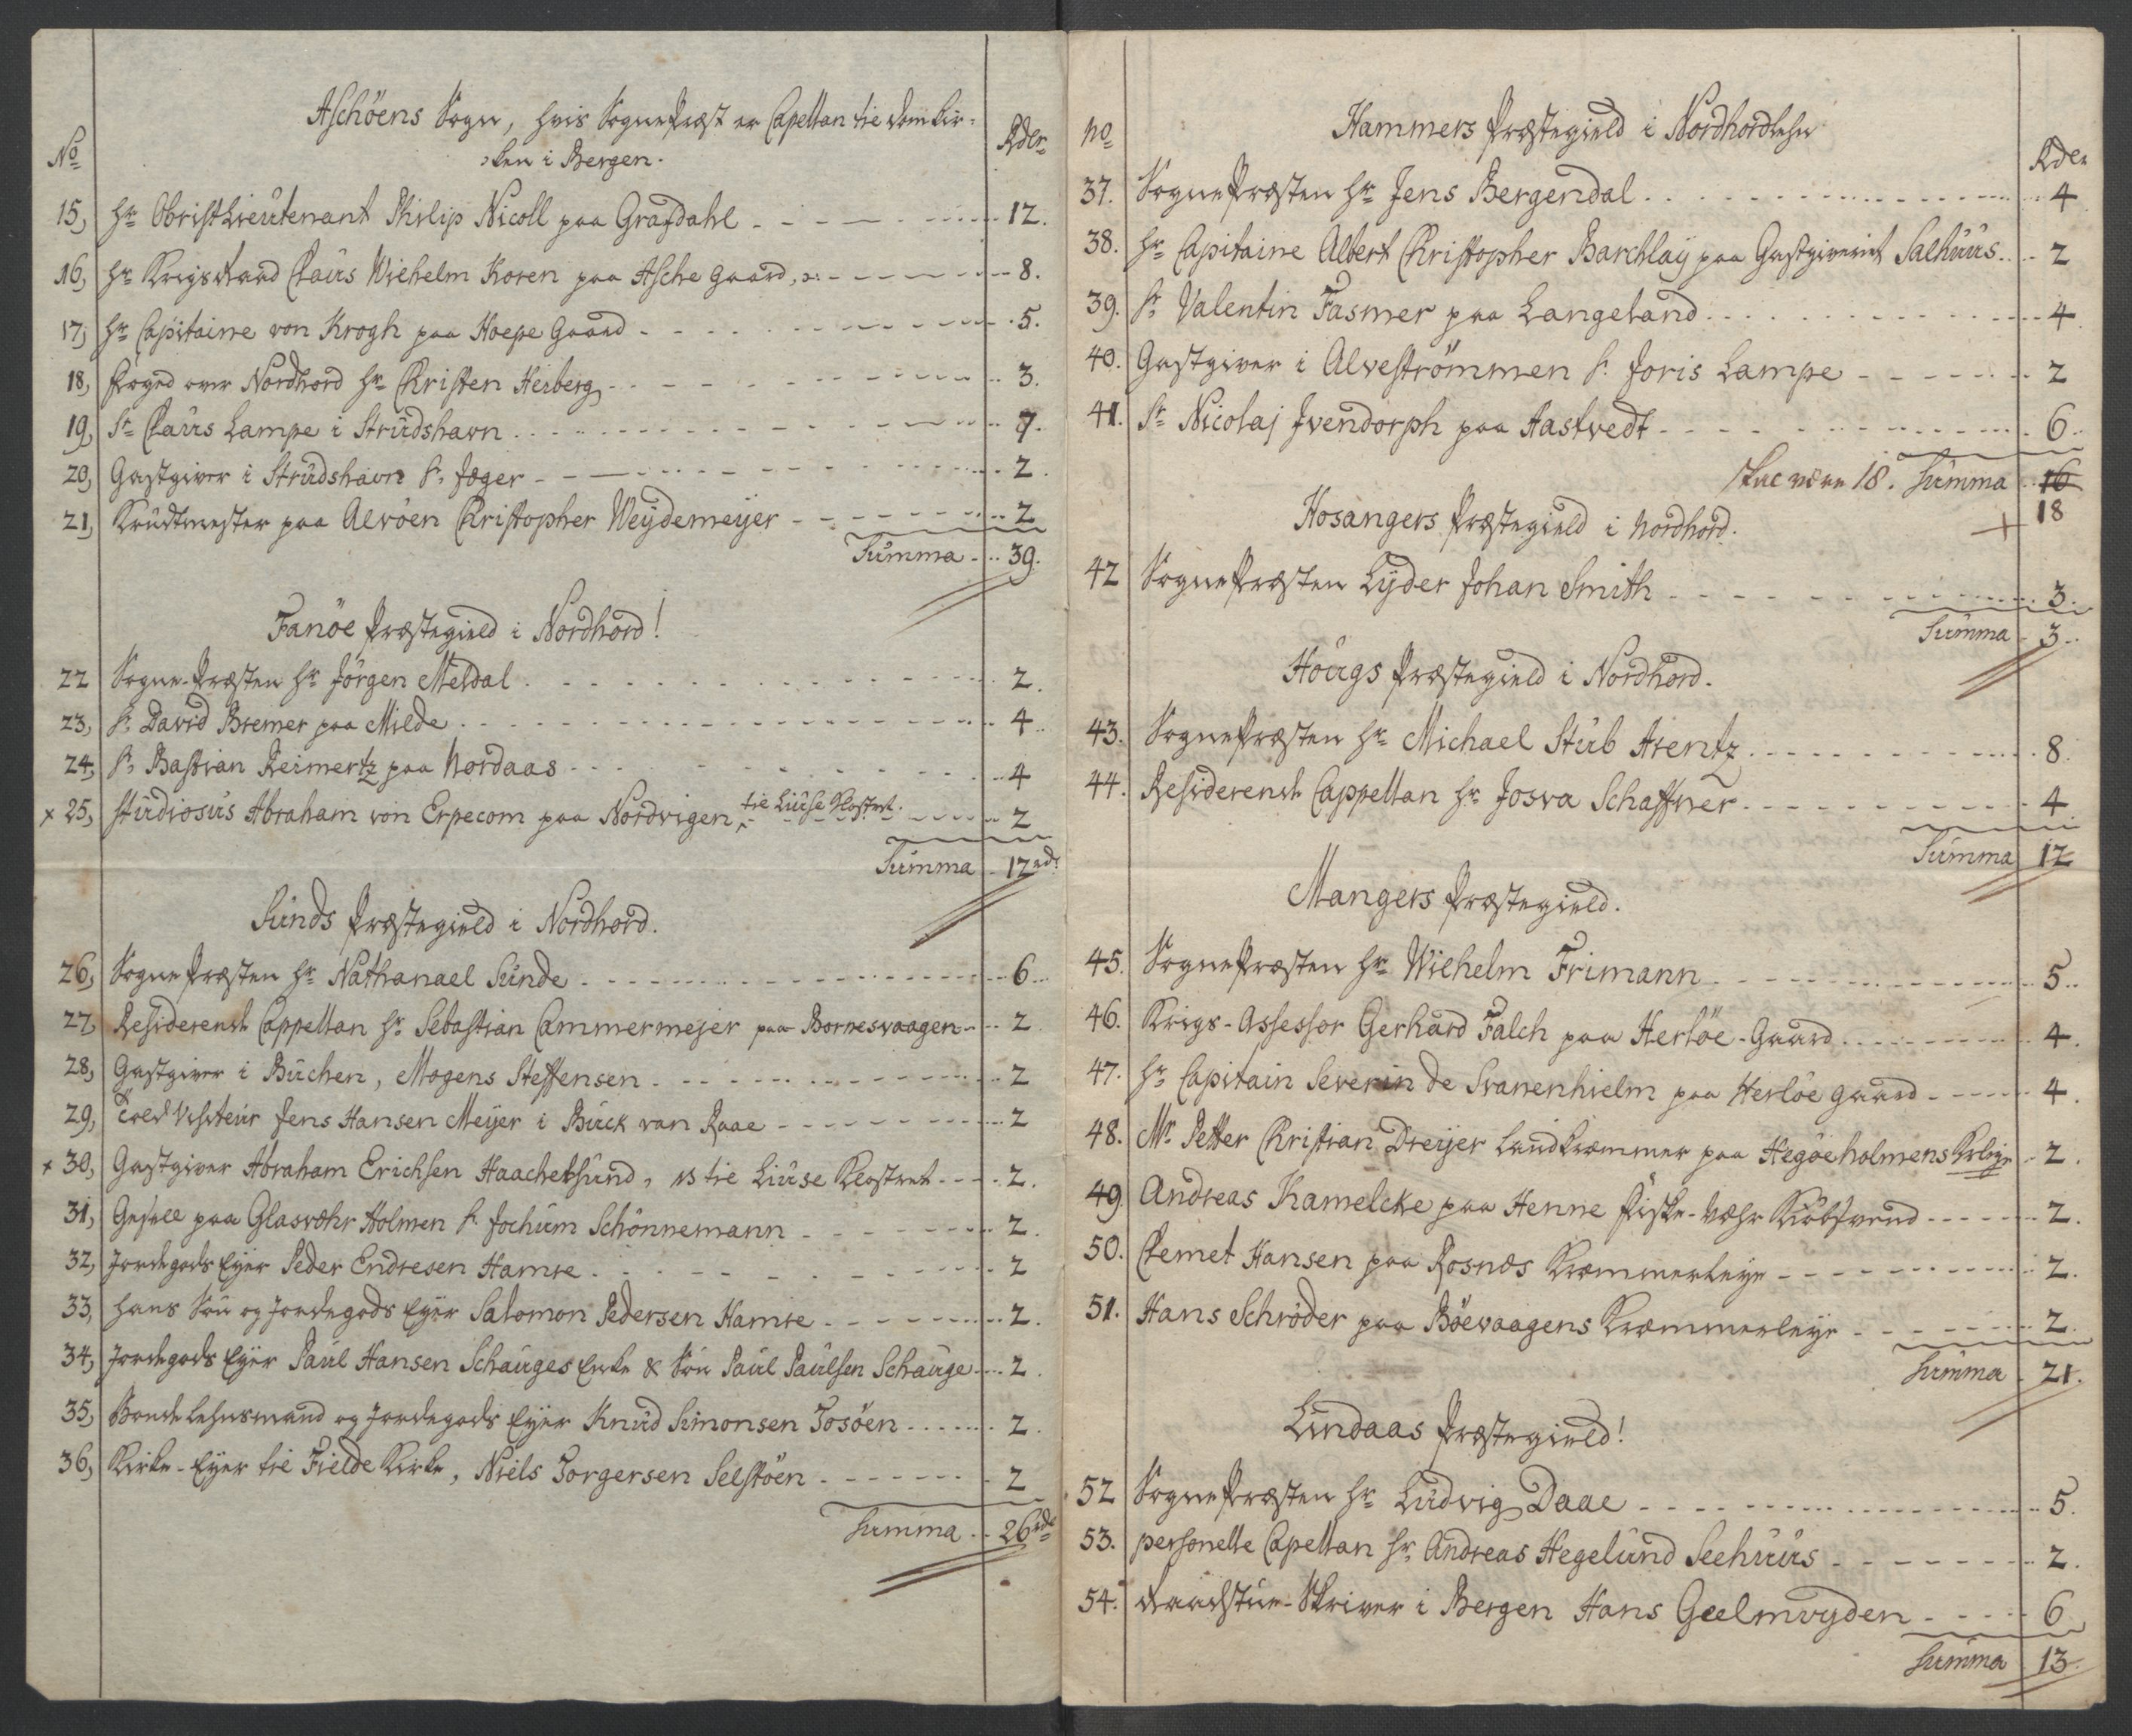 Aschöens Sogn, hvis SognePræst er Capellan til DomKir-
ken i Bergen.
No Rdlr
15, Hr ObristLieutenant Philip Nicoll paa Grafdahl 12.
16, Hr KrigsRaad Claus Wilhelm Koren paa Asche Gaard, 8.
17, Hr Capitaine von Krogh paa Hoepe Gaard 5.
18, Foged over Nordhord Hr Christen Heiberg 3.
19, Sr Claus Lampe i Strudshavn 7.
20, Gastgiver i Strudshavn S. Jæger 2.
21, Krudtmester paa Alvöen Christopher Weydemeyer 2
Summa 39.
Fanöe Præstegield i Nordhord!
22 Sogne-Præsten Hr Jörgen Meldal 2.
23, S. David Bremer paa Milde 4
24, S. Bastian Reimertz paa Nordaas 4
x 25, Studiosus Abraham von Erpecom paa Nordvigen, til Liuse Klostret. 2
Summa 12 rd.
Sunds Præstegield i Nordhord.
26, SognePræsten Hr Nathanael Sunde 6
27, Residerende Cappellan Hr Sebastian Cammermejer paa Bornesvaagen 2
28, Gastgiver i Buchen, Mogens Steffensen 2
29, Told Visiteur Jens Hansen Meyer i Buck van Raae 2
x 30, Gastgiver Abraham Erichsen Haachelsund, NB til Liuse Klostret 2.
31, Gesell paa Glasvæhr Holmen S. Jochum Schönnemann 2.
32, Jordegods Eyer Peder Endresen Hamre 2
33, Hans Sön og Jordegods Eyer Salomon Pedersen Hamre 2.
34, Jordegods Eyer Paul Hansen Schauges Enke & Sön Paul Paulsen Schauge 2.
35, Bonde Lehnsmand og Jordegods Eyer Knud Simonsen Tosöen 2.
36, Kirke-Eyer til Fielde Kirke, Niels Torgersen Selstöen 2
Summa 26 rdl
Hammers Præstegield i Nordhordlehn
no Rdlr
37. SognePræsten Hr Jens Bergendal 4
38. Hr Capitaine Albert Christopher Barchlay paa Gastgiveriet Salhuus 2
39. Sr Valentin Fasmer paa Langeland 4
40. Gastgiver i Alveströmmen S. Joris Lampe 2
41. Sr Nicolaj Jvendorph paa Aastvedt 6.
skal være 18. Summa 16
18
Hosangers Præstegield i Nordhord.
42 SognePræsten Lyder Johan Smith 3.
Summa 3
Hougs Præstegield i Nordhord.
43. SognePræsten Hr Michael Stub Arentz 8.
44. Residerende Cappellan Hr Josva Schaffner 4
Summa 12
Mangers Præstegield.
45. SognePræsten Hr Wilhelm Frimann 5
46. Krigs-Assessor Gerhard Falch paa Herlöe-Gaard 4.
47. Hr Capitain Severin de Svanenhielm paa Herlöe Gaard 4.
48. Mr Petter Christian Dreyer Landkræmmer paa Hegöeholmens 2.
49. Andreas Kamelcke paa Henne Fiske-Væhr Kiöbsvend 2.
50. Clemet Hansen paa Rosnæs Kræmmerleye 2.
51. Hans Schröder paa Böevaagens Kræmmerleye 2.
Summa 21.
Lindaas Præstegield!
52 SognePræsten Hr Ludvig Daae 5.
53. personelle Capellan Hr Andreas Hegelund Seehuus 2.
54. Raadstue-Skriver i Bergen Hans Geelmuyden 6
Summa 13.